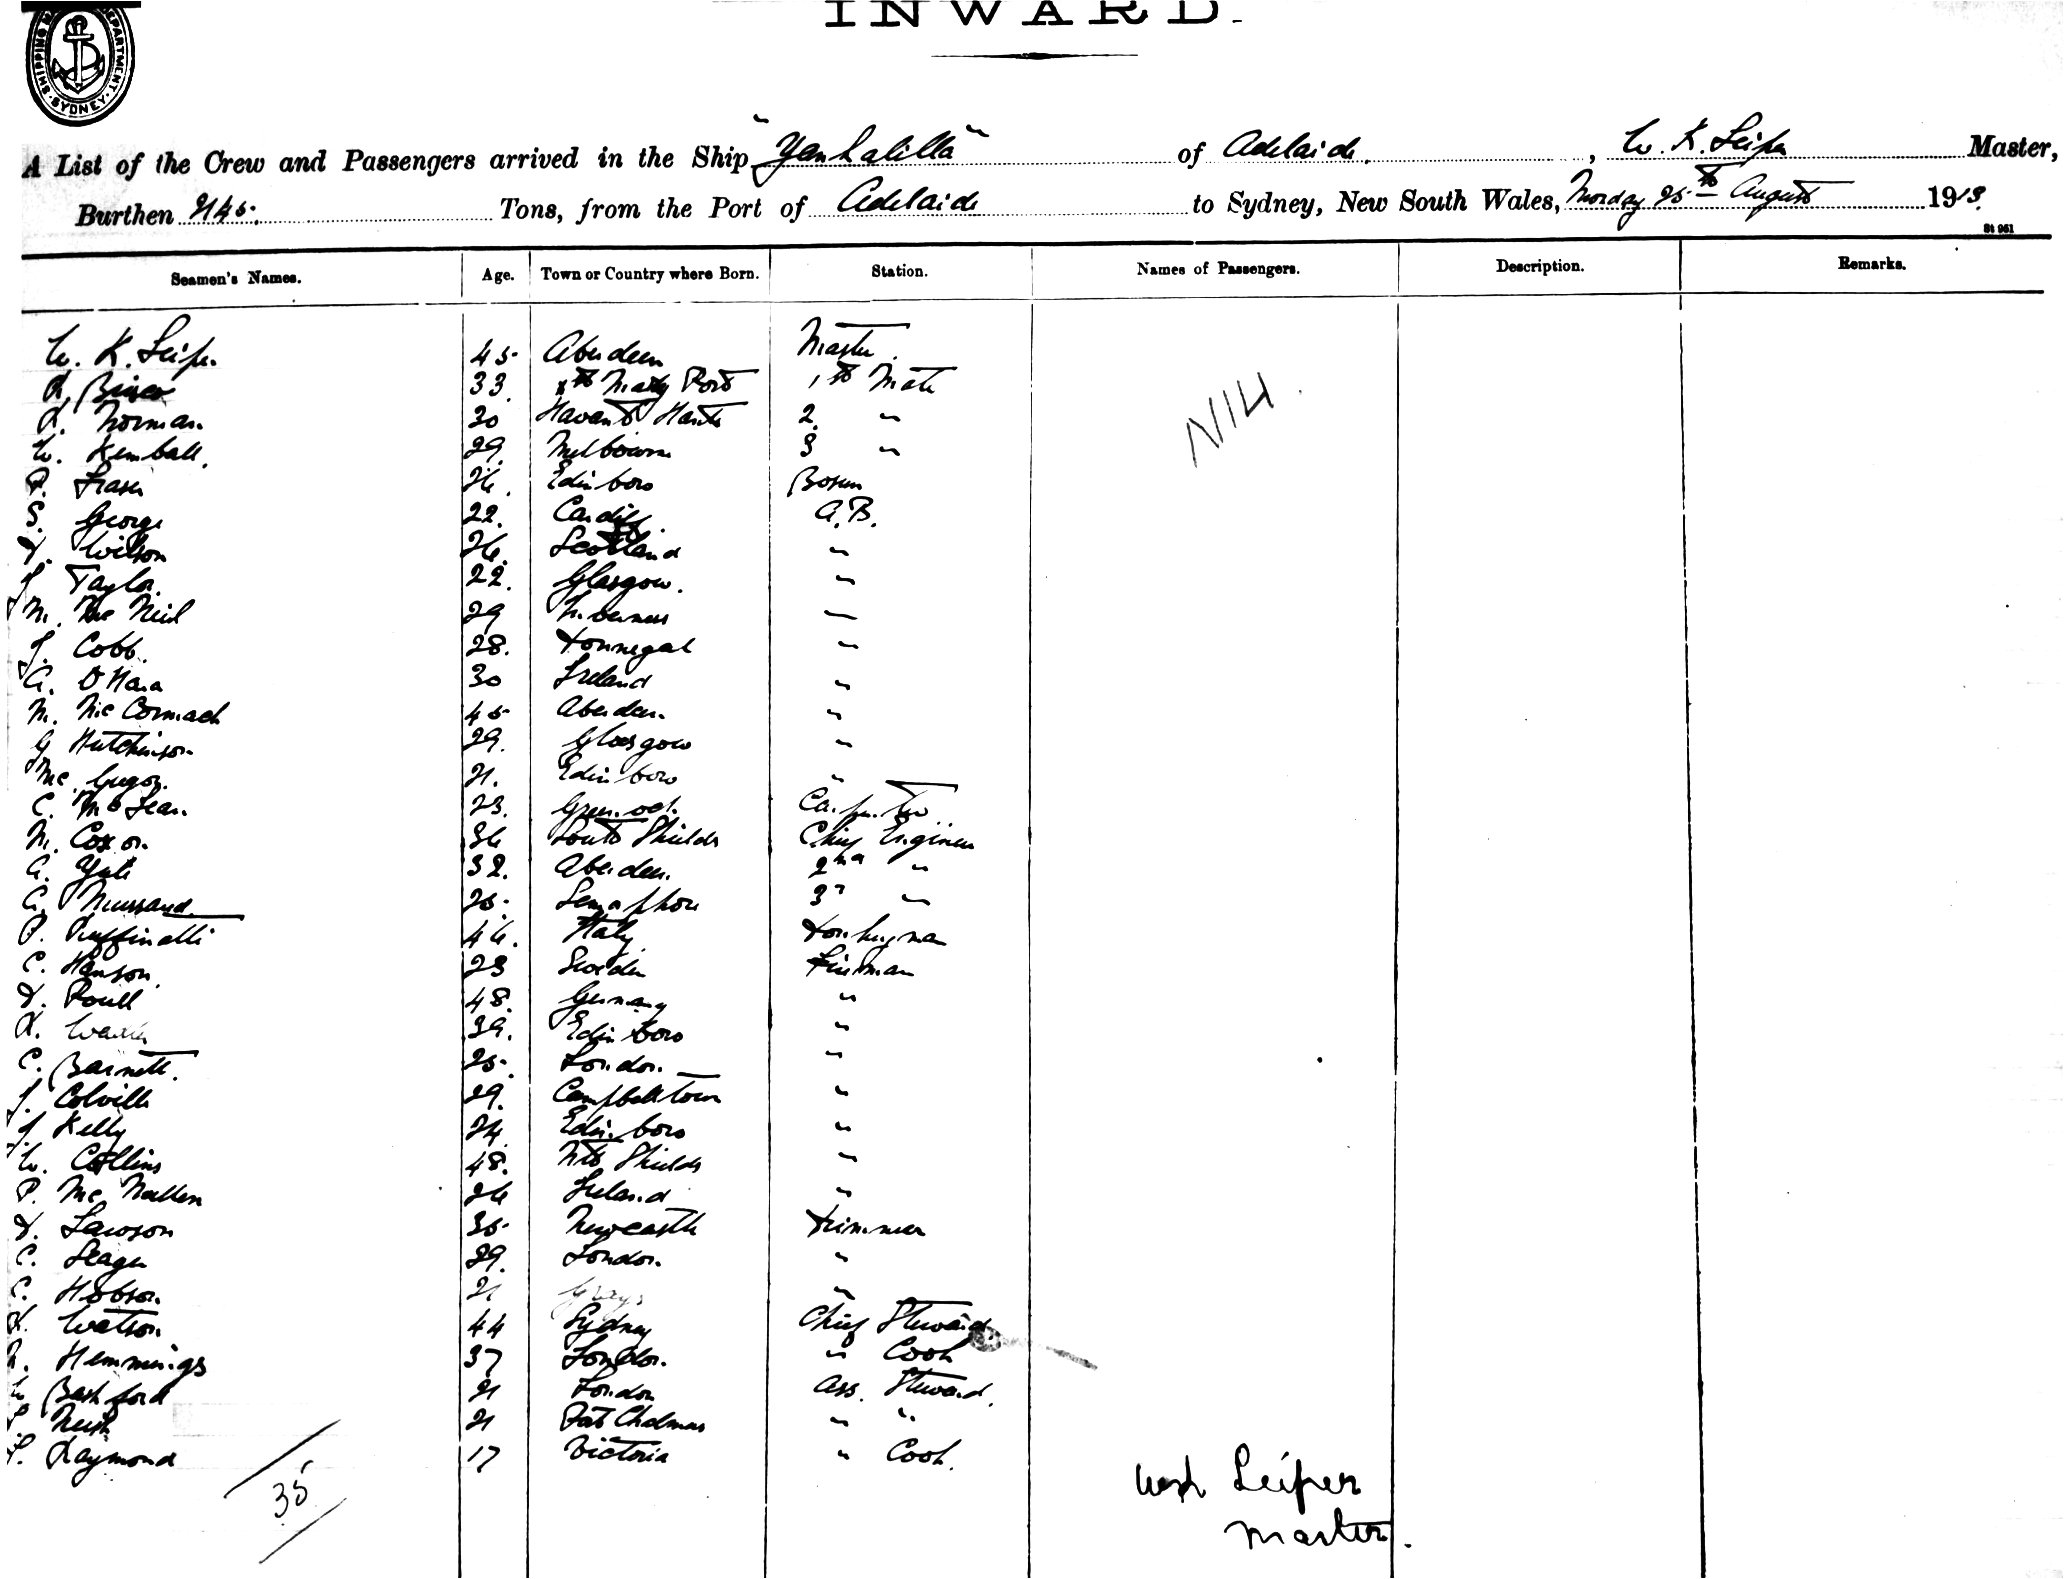 INWARD.
SHIPPING DEPARTMENT. SYDNEY.
A List of the Crew and Passengers arrived in the Ship "Yankalilla" of Adelaide, W. K. Leiper Master,
Burthen Tons, from the Port of Adelaide to Sydney, New South Wales, Monday 25th August 1913.
St 961
Seamen's Names. Age. Town or Country where Born. Station. Names of Passengers. Description. Remarks.
W. K. Leiper 45 Aberdeen Master
33 Mary Port 1st Mate
Norman 30 Havant Hants 2 "
W. Kemball 29 Melbourne 3 "
NIL
P. Fraser Edinboro Bosun
S. George 22. Cardiff A.B.
Wilson Scotland "
J. Taylor 22. Glasgow. "
N. Mc Neil 29 Inverness "
J. Cobb. 28. Donnegal "
A. O'Hara 30 Ireland "
M. Mc Cormack 45 Aberdeen "
G Hutchinson 29. Glasgow "
Mc. Gregor 21. Edinboro "
C. McLean. 23. Greenock. Carpenter
N. Coxon. South Shields Chief Engineer
A. Yule 32. Aberdeen. 2nd "
25 Semaphore 3rd "
P. Ruffinelli Italy Donkeyman
C. Hanson 23 Sweden Fireman
48. Germany "
39. Edinboro "
C. Barnett. 25. London. "
J. Colville 29. Campbelltown "
J Kelly 24. Edinboro "
W. Collins 48. Nth Shields "
P. Mc Nallen Ireland "
Lawson 35 Newcastle Trimmer
C. Seager 39. London. "
C. Hobson. 21 Grays "
Watson. 44 Sydney Chief Steward
Hemmings 37 London. " Cook
Bashford 21 London Ass. Steward.
21 Port Chalmers " "
Raymond 17 Victoria " Cook.
35
WK Leiper
Master.